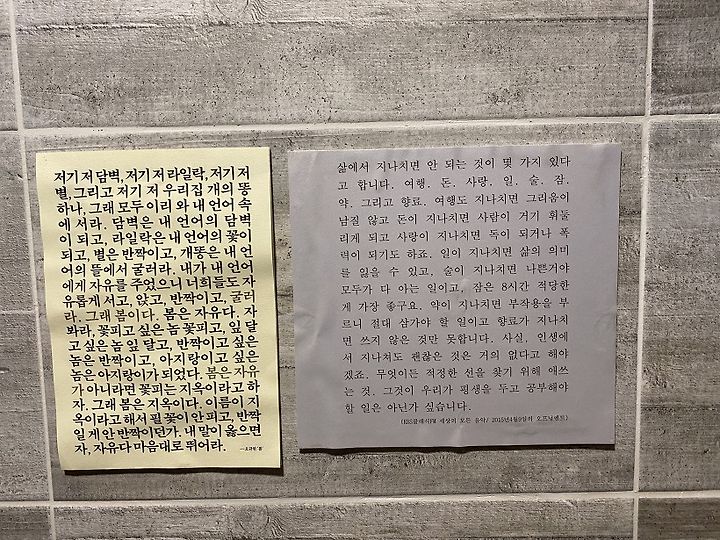 저기 저 담벽, 저기 저 라일락, 저기 저
별, 그리고 저기 저 우리집 개의 똥
하나, 그래 모두 이리 와 내 언어 속
에 서라. 담벽은 내 언어의 담벽
이 되고, 라일락은 내 언어의 꽃이
되고, 별은 반짝이고, 개똥은 내 언
어의 뜰에서 굴러라. 내가 내 언어
에게 자유를 주었으니 너희들도 자
유롭게 서고, 앉고, 반짝이고, 굴러
라. 그래 봄이다. 봄은 자유다. 자
봐라, 꽃피고 싶은 놈 꽃피고, 잎 달
고 싶은 놈 잎 달고, 반짝이고 싶은
놈은 반짝이고, 아지랑이고 싶은
놈은 아지랑이가 되었다. 봄은 자유
가 아니라면 꽃피는 지옥이라고 하
자. 그래 봄은 지옥이다. 이름이 지
옥이라고 해서 필 꽃이 안 피고, 반짝
일 게 안 반짝이던가. 내 말이 옳으면
자, 자유다 마음대로 뛰어라.
삶에서 지나치면 안 되는 것이 몇 가지 있다
고 합니다. 여행. 돈. 사랑. 일. 술. 잠.
약. 그리고 향료. 여행도 지나치면 그리움이
남질 않고 돈이 지나치면 사람이 거기 휘둘
리게 되고 사랑이 지나치면 독이 되거나 폭
력이 되기도 하죠. 일이 지나치면 삶의 의미
를 잃을 수 있고, 술이 지나치면 나쁜거야
모두가 다 아는 일이고, 잠은 8시간 적당한
게 가장 좋구요. 약이 지나치면 부작용을 부
르니 절대 삼가야 할 일이고 향료가 지나치
면 쓰지 않은 것만 못합니다. 사실, 인생에
서 지나쳐도 괜찮은 것은 거의 없다고 해야
겠죠. 무엇이든 적정한 선을 찾기 위해 애쓰
는 것. 그것이 우리가 평생을 두고 공부해야
할 일은 아닌가 싶습니다.
(KBS클래식FM 세상의 모든 음악/ 2015년4월9일의 오프닝멘트)